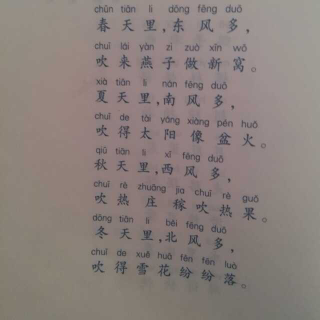 chūn tiān li dōng fēng duō
春天里,东风多,
chuī lái yàn zi zuò xīn wō
吹来燕子做新窝。
xià tiān li nán fēng duō
夏天里,南风多,
chuī de tài yáng xiàng pén huǒ
吹得太阳像盆火。
qiū tiān li xī fēng duō
秋天里,西风多,
chuī rè zhuāng jia chuī rè guǒ
吹热庄稼吹热果。
dōng tiān li běi fēng duō
冬天里,北风多,
chuī de xuě huā fēn fēn luò
吹得雪花纷纷落。